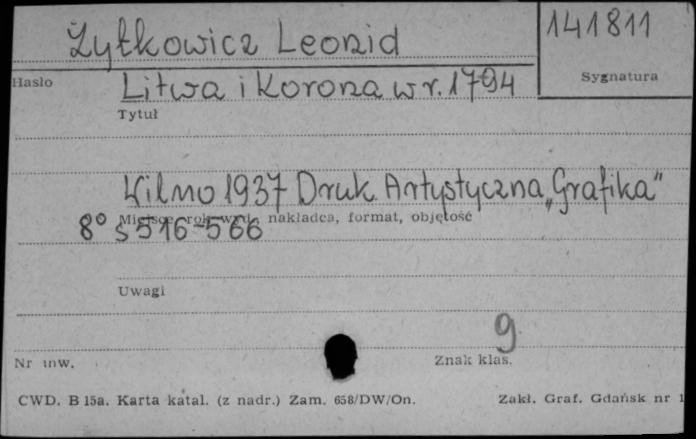 Żytkowicz Leonid
141811
Hasło
Sygnatura
Litwa i Korona w r. 1794
Tytuł
Wilno 1937 Druk. Artystyczna „Grafika"
Miejsce, rok wyd., nakładca, format, objętość
8° s 516-566
Uwagi
9
Nr inw.
Znak klas.
CWD. B 15a. Karta katal. (z nadr.) Zam. 658/DW/On.
Zakł. Graf. Gdańsk nr 1